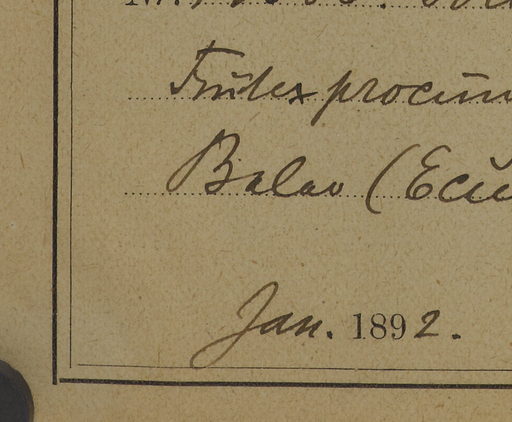 Frutex procum
Balao (Ecu
Jan. 1892.